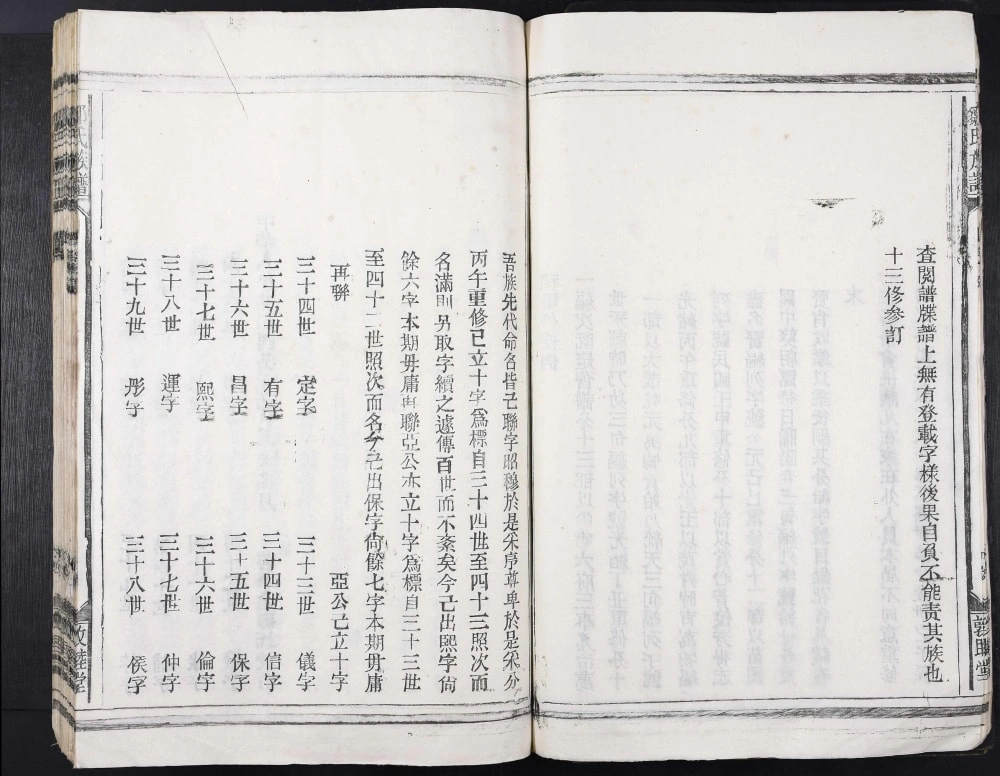 鄒氏族譜
查閱譜牒譜上無有登載字樣後果自負不能責其族也
十三修參訂
敦睦堂
吾族先代命名皆已聯字昭穆於是乎序尊卑於是乎分
丙午重修已立十字為標自三十四世至四十三照次而
名滿則另取字續之遞傳百世而不紊矣今已出熙字尙
餘六字本期毋庸再聯亞公亦立十字為標自三十三世
至四十二世照次而名今已出保字尙餘七字本期毋庸
再聯
亞公已立十字
三十四世 定字 三十三世 儀字
三十五世 有字 三十四世 信字
三十六世 昌字 三十五世 保字
三十七世 熙字 三十六世 倫字
三十八世 運字 三十七世 仲字
三十九世 彤字 三十八世 侯字
鄒氏族譜
敦睦堂